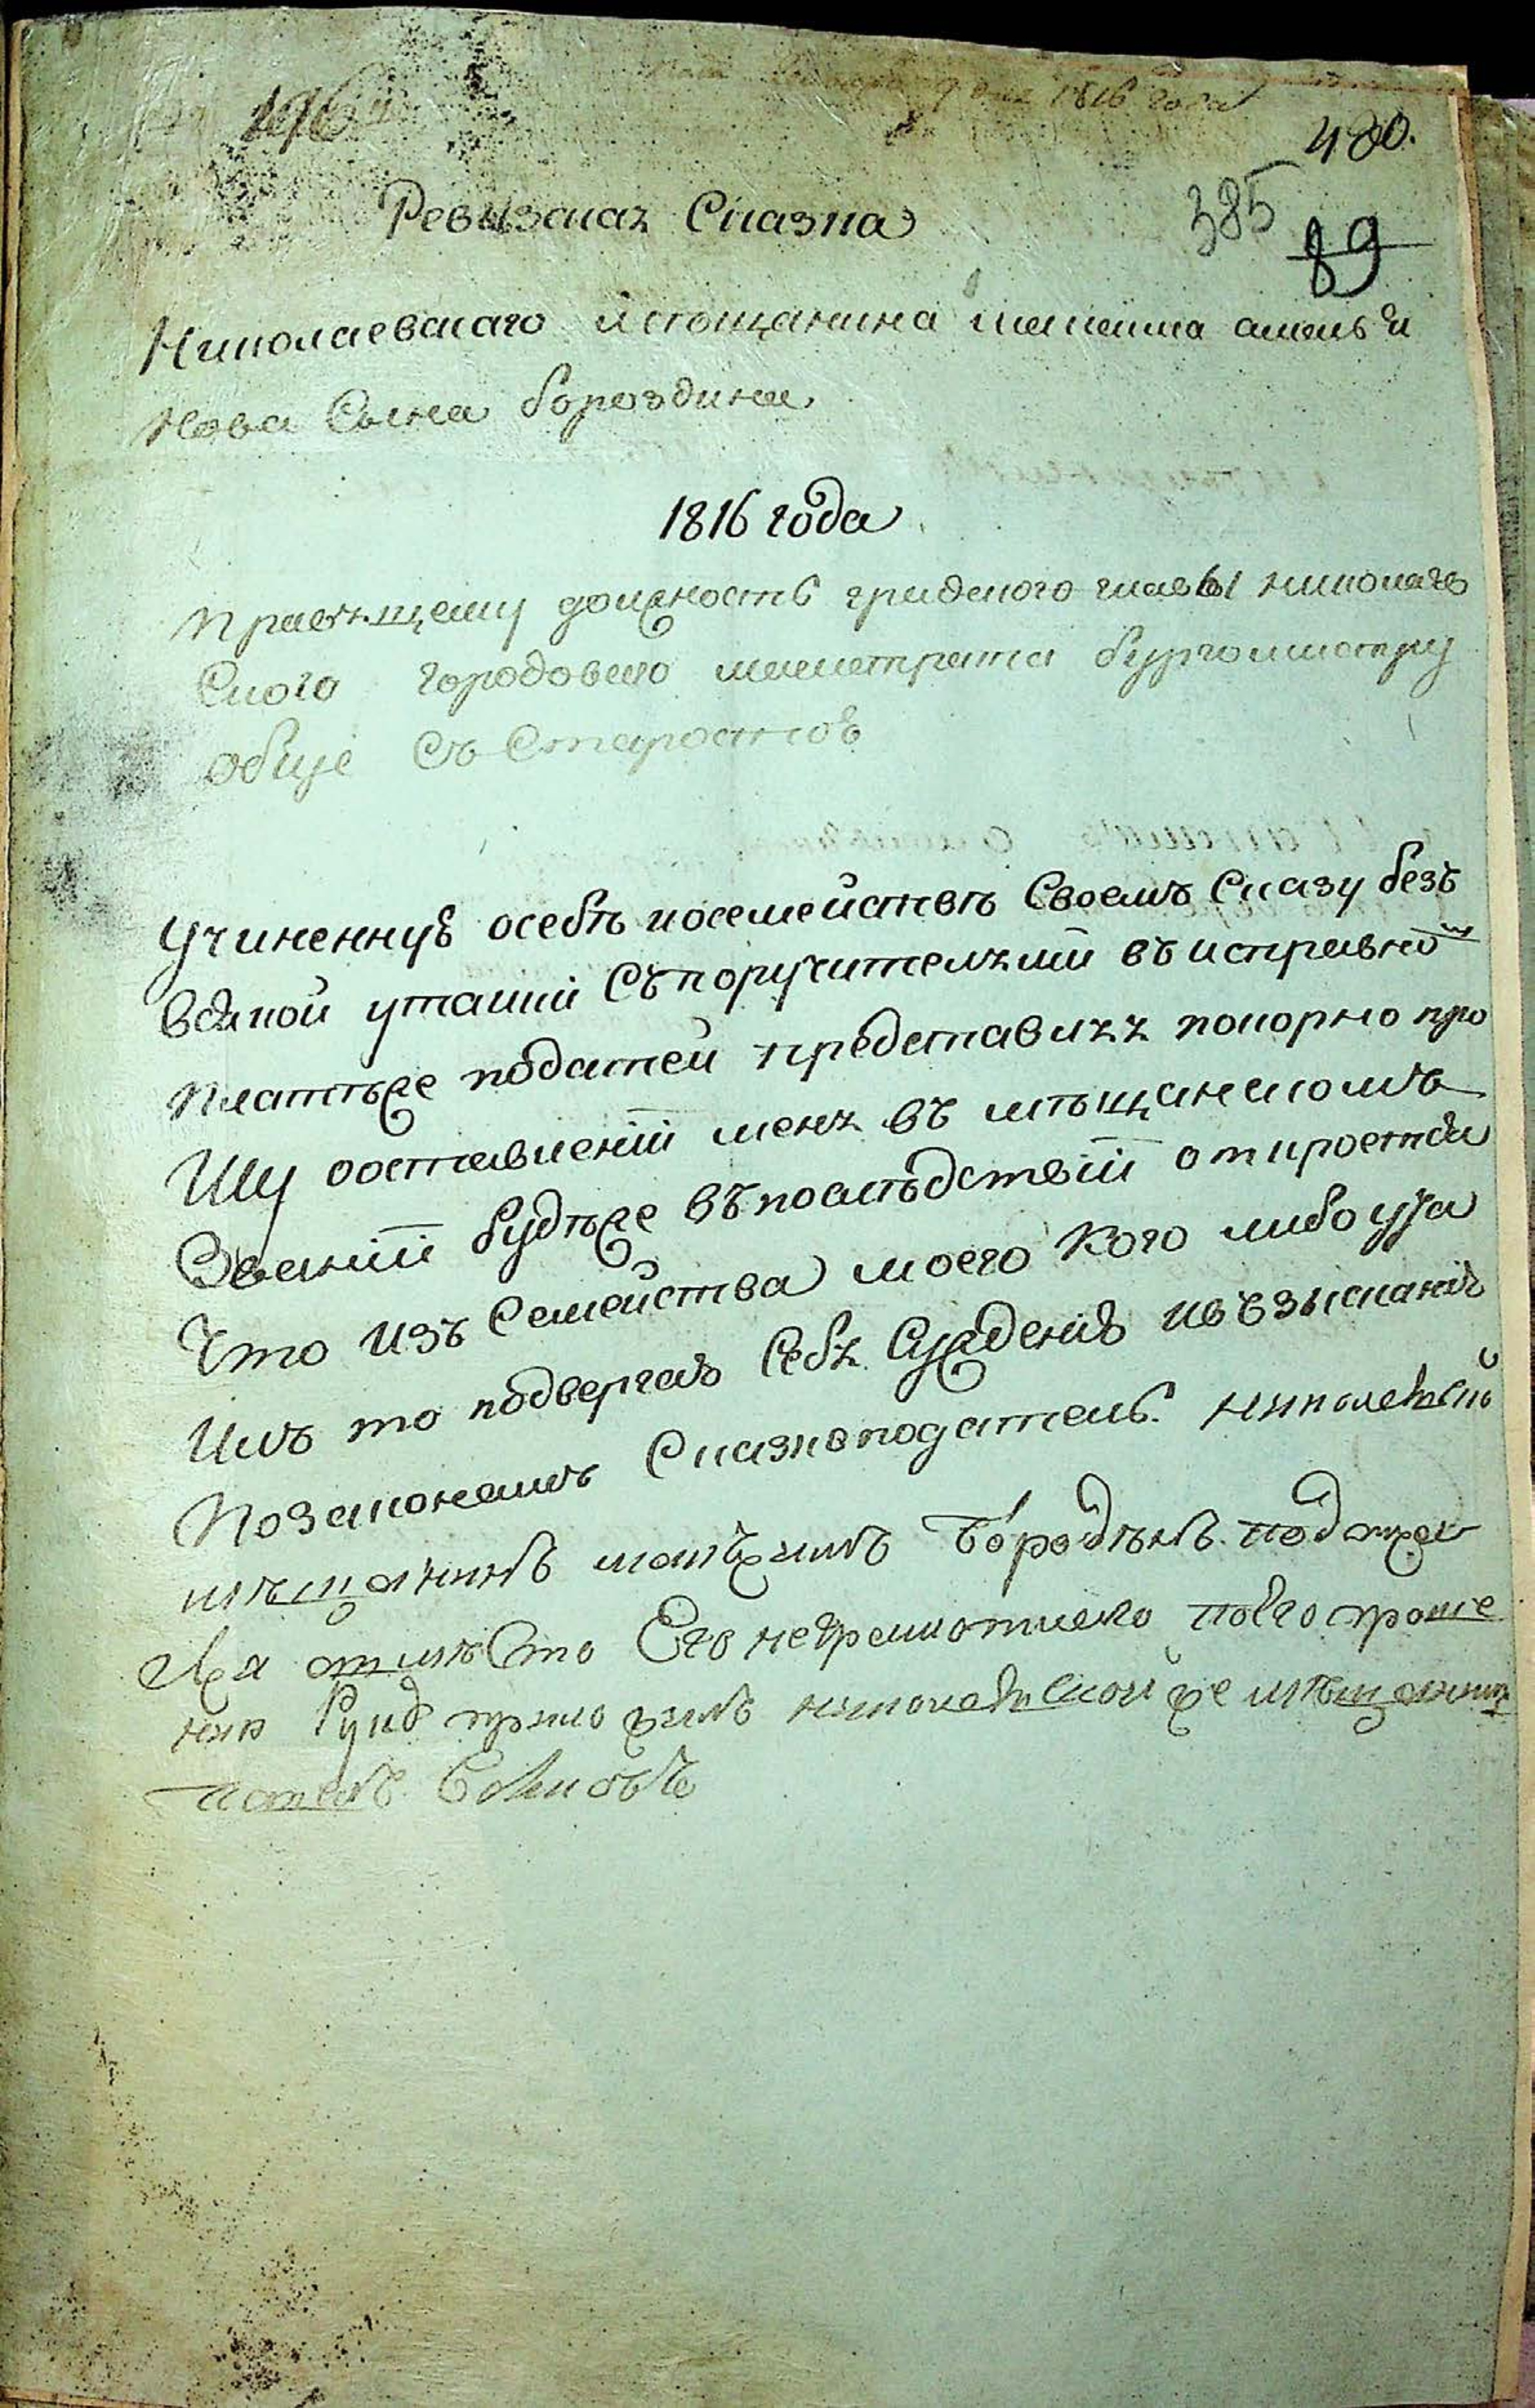 1816 года
480.
385
89
Ревызская Сказка
Николаевскаго мещанина
нова Сына бороздина
1816 года
Правящему должность градского главы николаев
Ского городоваго магистрата бургомистру
обще Съ Старостою
Учиненную осебѣ исемействѣ Своемъ Сказу безъ
всякой утайки Съпоручительми въ исправно
платтѣже податей представляя покорно про
шу ооставленіи меня въ мѣщанскомъ
Званіи будѣже въпослѣдствіи откроетца
Что изъ Семейства моего кого либо ута
илъ то подвергаю Себя Сужденію ивъзысканію
позаконамъ Сказкоподатель николаевский
мѣщанинъ
ево неграмотнаго поево проше
нию николаевской же мѣщанинъ